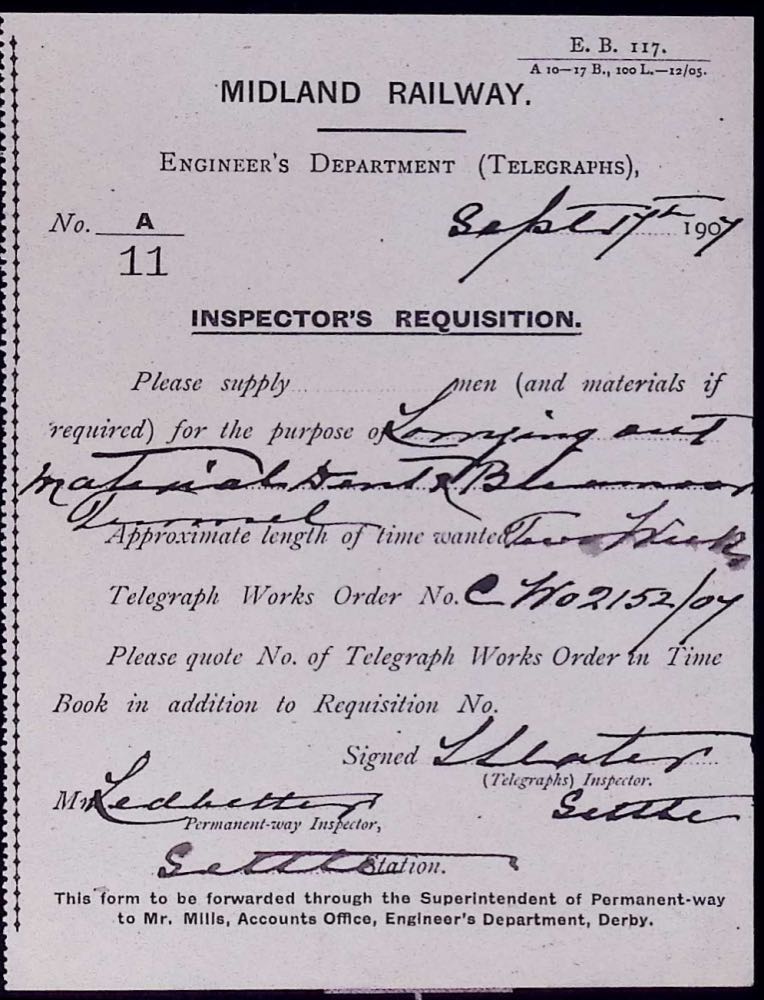 E. B. 117.
A 10—17 B., 100 L.—12/05.
MIDLAND RAILWAY.
ENGINEER'S DEPARTMENT (TELEGRAPHS),
No. A
11
Sept 17th 1907
INSPECTOR'S REQUISITION.
Please supply men (and materials if
required) for the purpose of Lorrying out
material Dent & Bleamoor
Tunnel
Approximate length of time wanted Two Weeks
Telegraph Works Order No. C W02152/07
Please quote No. of Telegraph Works Order in Time
Book in addition to Requisition No.
Signed Slater
(Telegraphs) Inspector.
Settle
Mr Ledbetter
Permanent-way Inspector,
Settle Station.
This form to be forwarded through the Superintendent of Permanent-way
to Mr. Mills, Accounts Office, Engineer's Department, Derby.